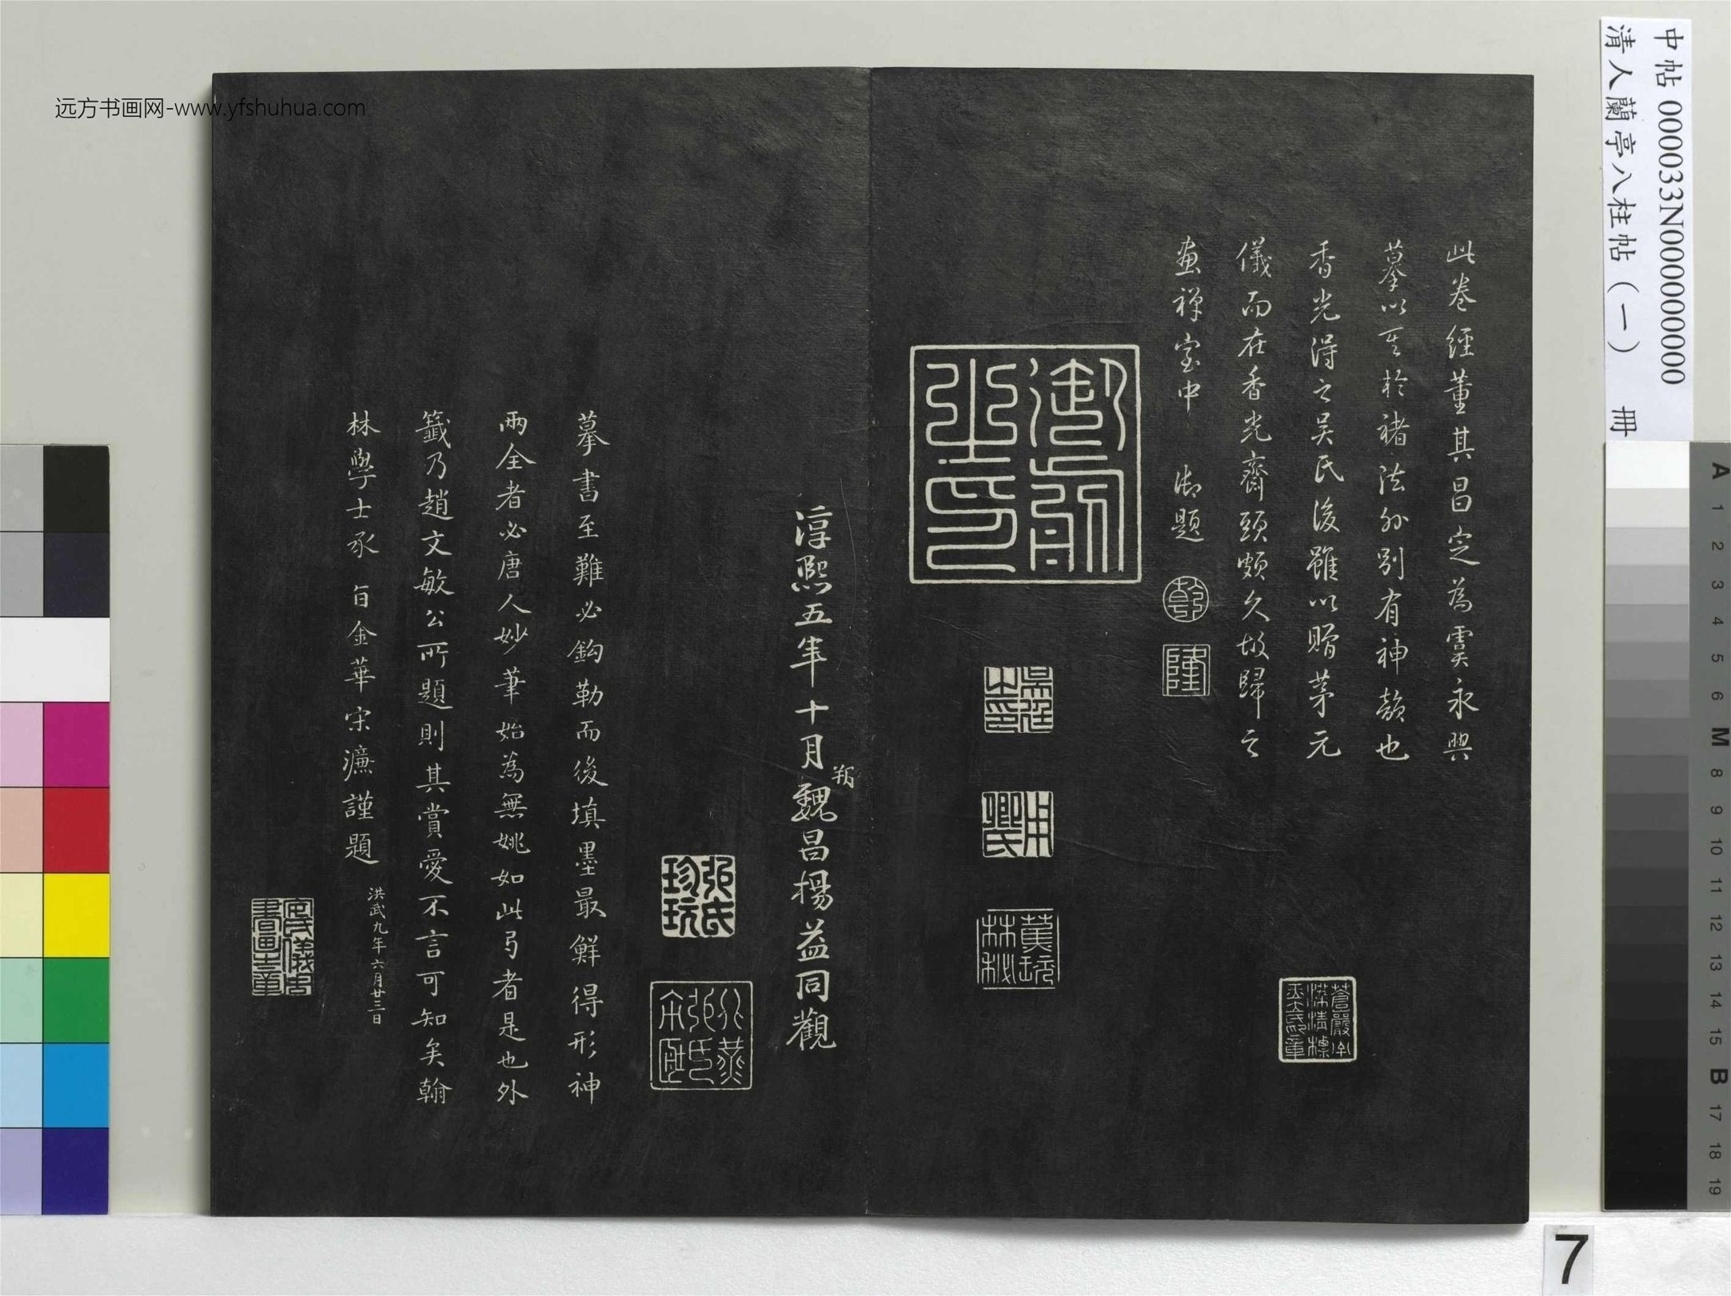 此卷經董其昌定為虞永興
摹以其於褚法外別有神韻也
香光得之吴氏後雖以贈茅元
儀而在香光齋頭頗久故歸之
画禅室中 御題
乾
隆
淳熙五年十月朔魏昌楊益同觀
張氏
珍玩
摹書至難必鈎勒而後填墨最鮮得形神
兩全者必唐人妙筆始為無姚如此弓者是也外
籤乃趙文敏公所題則其賞愛不言可知矣翰
林學士承旨金華宋濂謹題
洪武九年六月廿三日
中帖 000033N000000000
清人蘭亭八柱帖（一） 冊
远方书画网-www.yfshuhua.com
A 1 2 3 4 5 6 M 8 9 10 11 12 13 14 15 B 17 18 19
7